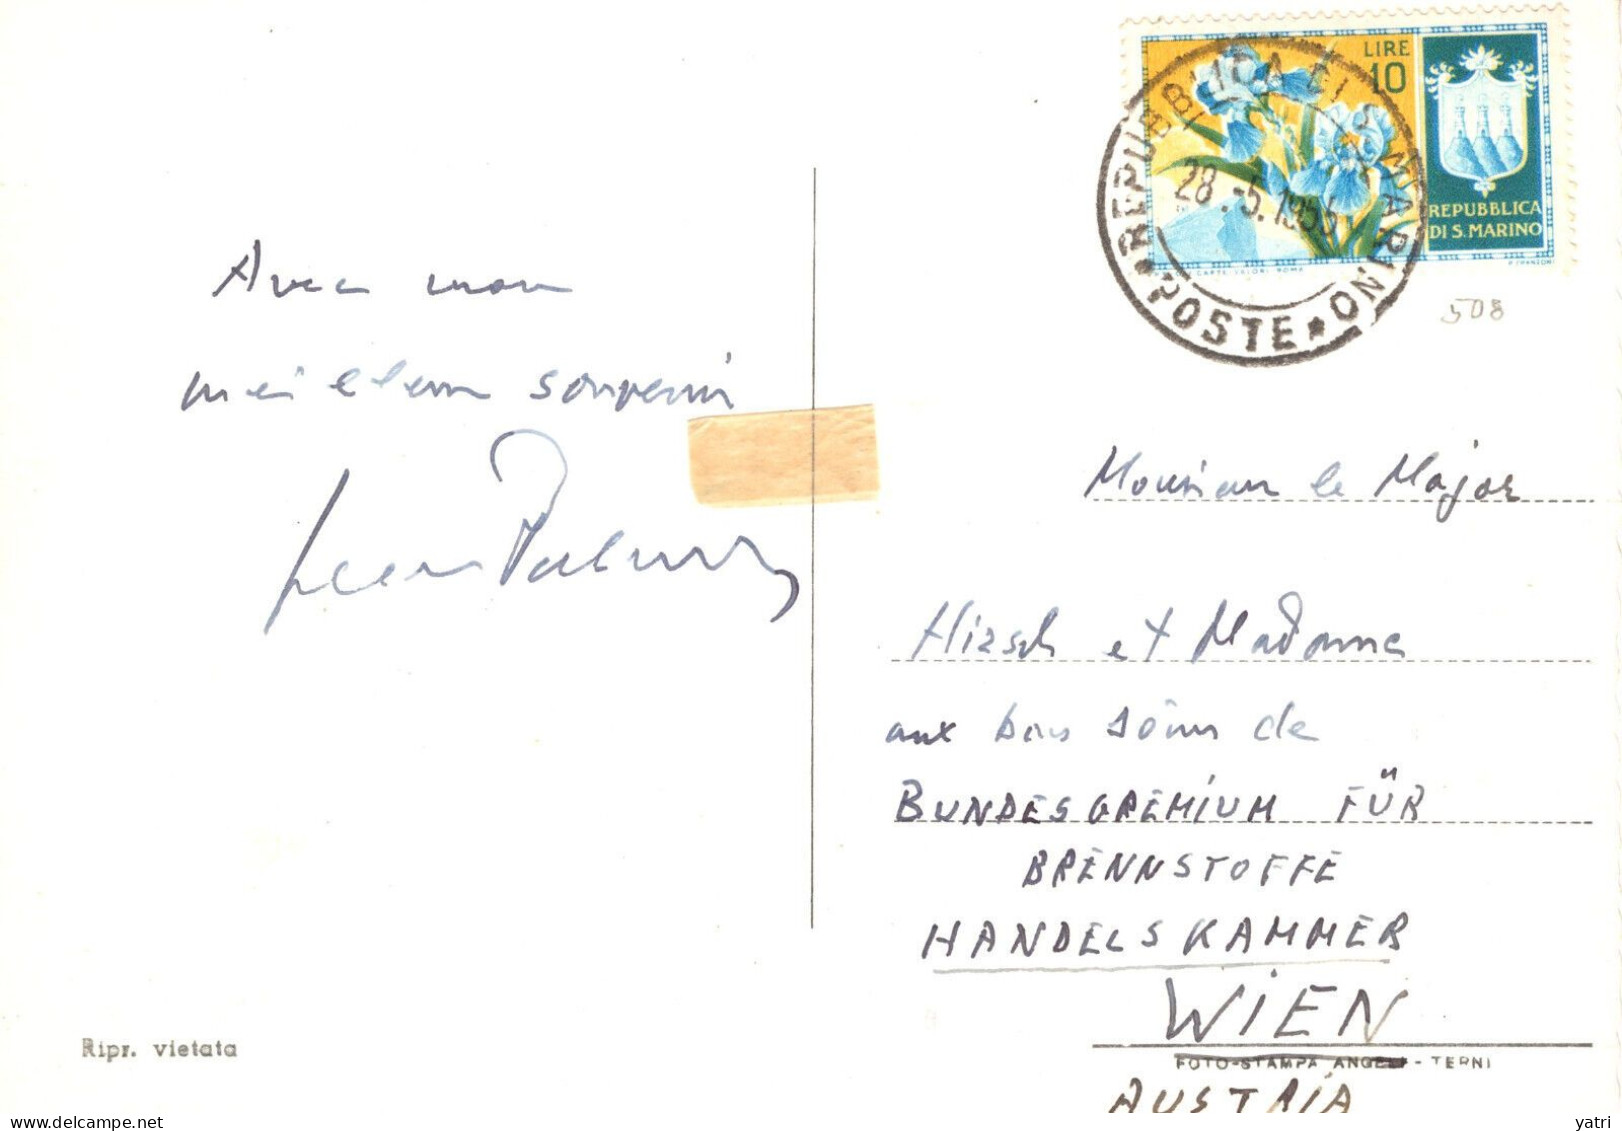 LIRE
10
REPUBBLICA
DI S. MARINO
REPUBBLICA DI S. MARINO
28.-5.195
* POSTE *
508
Avec mon
meilleur souvenir
Monsieur le Major
Hirsch et Madame
aux bons soins de
BUNDESGREMIUM FÜR
BRENNSTOFFE
HANDELSKAMMER
WIEN
AUSTRIA
Ripr. vietata
FOTO-STAMPA ANGELI - TERNI
yatri